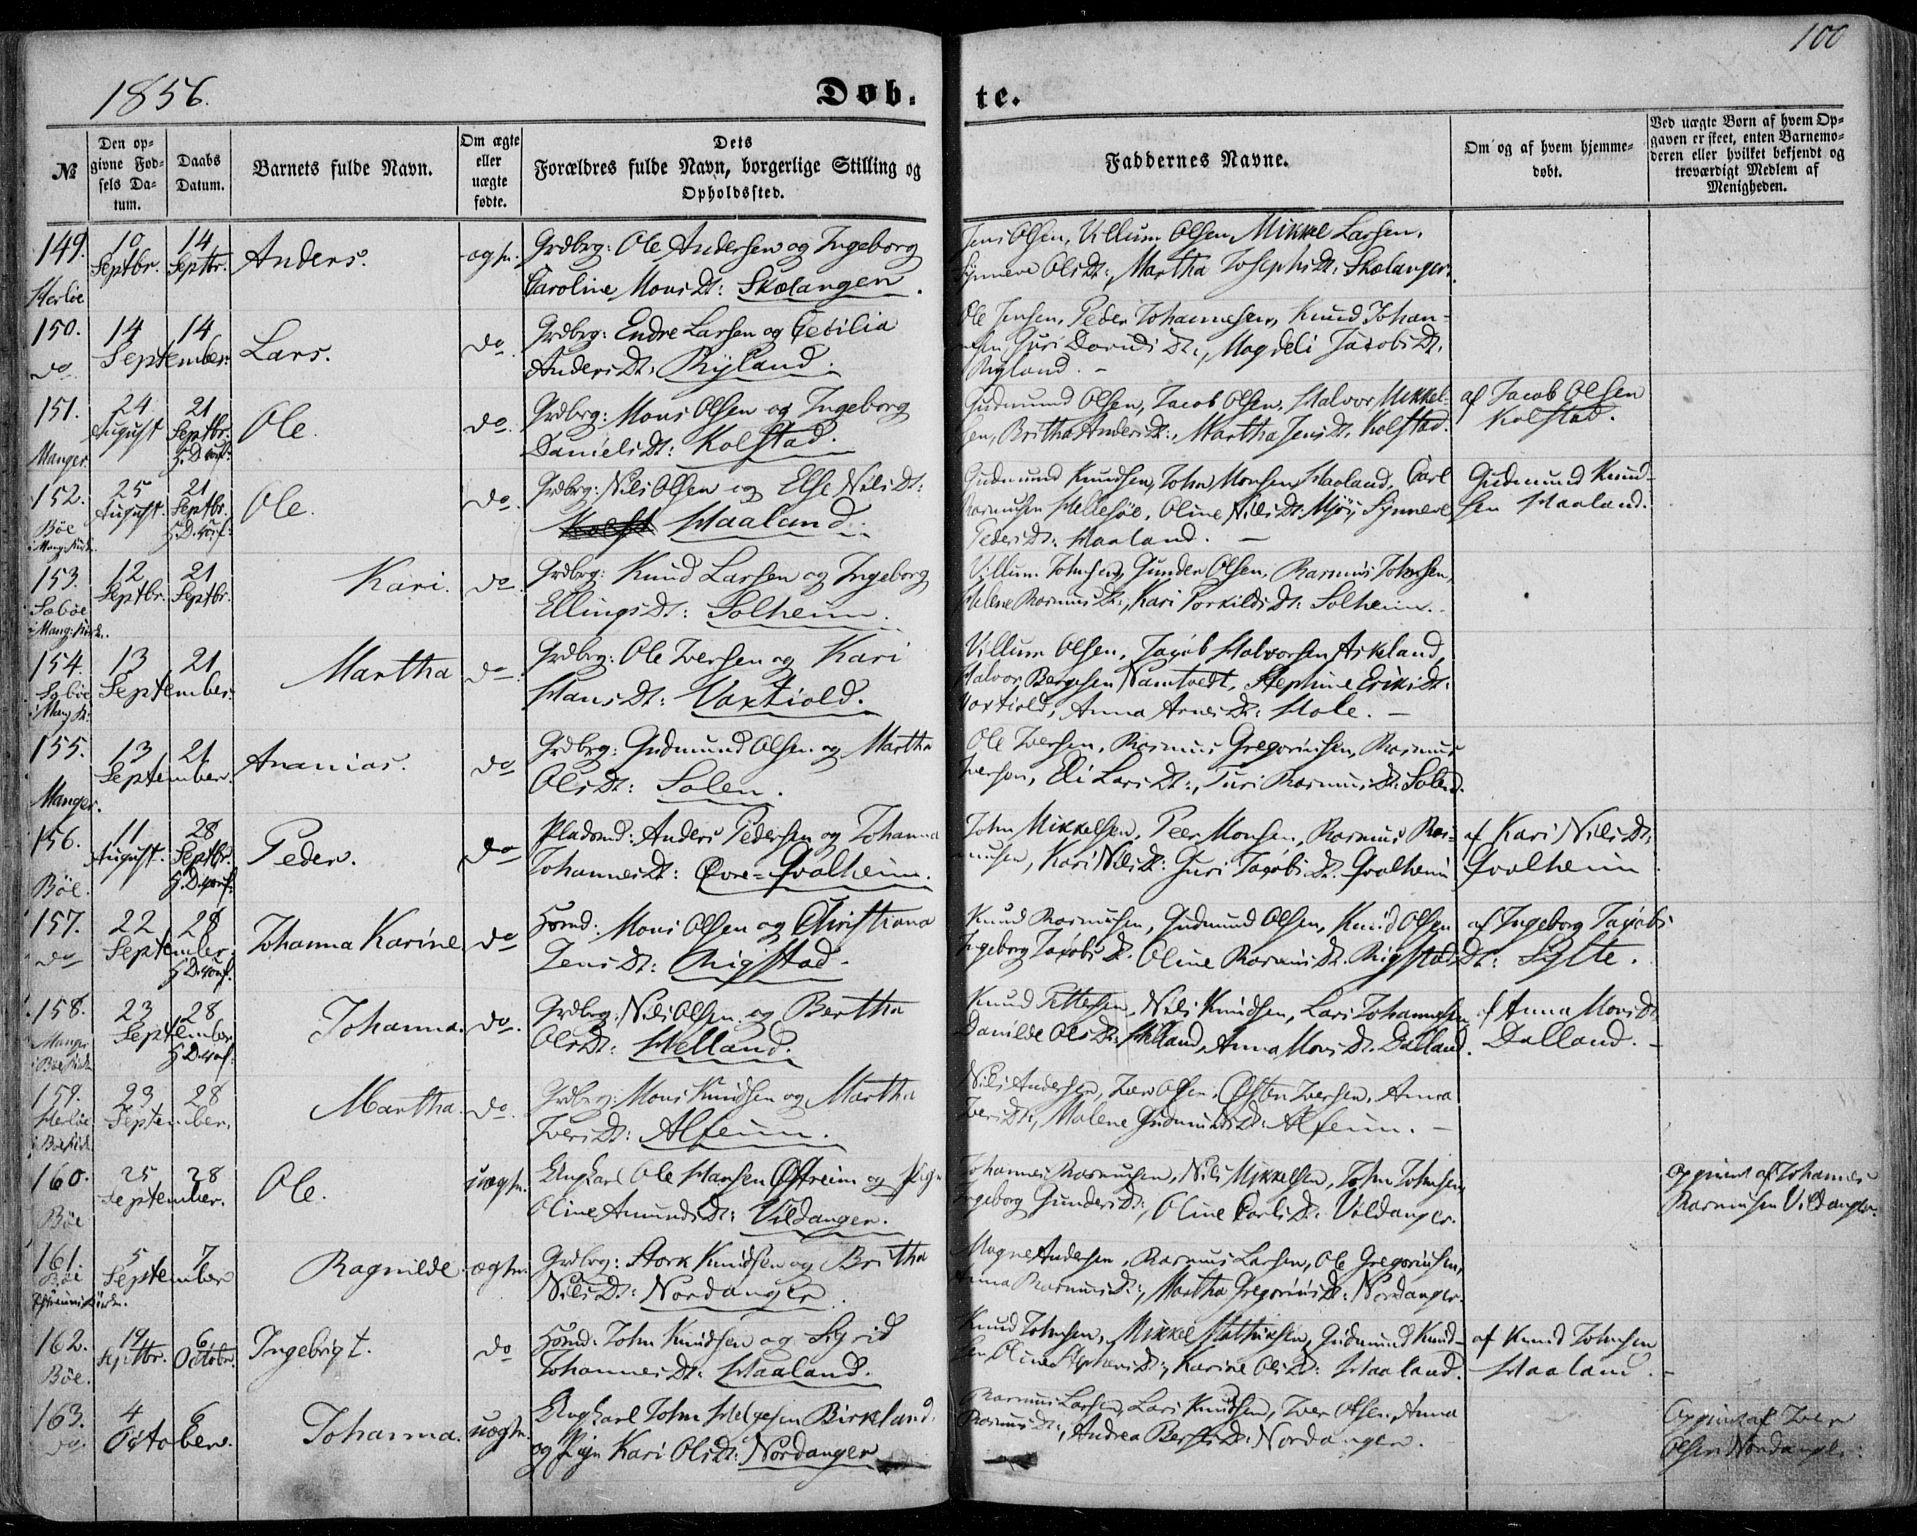 100
1856.
Døb- te.
№
Den op-
givne Fød-
sels Da-
tum.
Daabs
Datum.
Barnets fulde Navn.
Om ægte
eller
uægte
fødte.
Dets
Forældres fulde Navn, borgerlige Stilling og
Opholdssted.
Faddernes Navne.
Om og af hvem hjemme-
døbt.
Ved uægte Børn af hvem Op-
gaven er skeet, enten Barnemo-
deren eller hvilket bekjendt og
troværdigt Medlem af
Menigheden.
149. 10 14
Septbr. Septbr. Anders. ægte. Grdbrg: Ole Andersen og Ingeborg
Herløe Caroline Monsdt: Skolangen.
Jens Olsen, Villum Olsen, Mikkel Larsen,
Synneve Olsdt:, Martha Josephsdt: Skolanger.
150. 14 14
do September Lars. do. Grdbrg: Endre Larsen og Cecilia
Andersdt: Ryland.
Ole Jensen, Peder Johannesen, Knud Johan-
nsen, Guri Davidsdt:, Magdeli Jacobsdt,
Ryland. -
151. 24 21
Manger. August Septbr. Ole. do. Grdbrg: Mons Olsen og Ingeborg
Danielsdt: Kolstad.
Gudmund Olsen, Jacob Olsen, Halvor Mikkel-
sen, Britha Andersdt:, Martha Jensdt, Kolstad.
af Jacob Olsen
Kolstad.
152. 25 21
Bøe August Septbr. Ole. do. Grdbrg: Nils Olsen og Else Nilsdt:
Haaland.
Gudmund Knudsen, John Monsen, Haaland, Carl
Rasmusen Hellesøe, Oline Nilsdt: Mjøs, Synneve
Pedersdt: Haaland. -
Gudmund Knud-
sen Haaland.
153. 12 21
Sæbøe Septbr. Septbr. Kari. do. Grdbrg: Knud Larsen og Ingeborg
i Mang: Kirke. Ellingsdt: Solheim.
Villum Johnsen, Gunder Olsen, Rasmus Johnsen,
Helene Rasmusdt:, Kari Torkildsdt: Solheim.
154. 13 21
Sæbøe September Martha do. Grdbrg: Ole Iversen og Kari
Hansdt: Vaxtiold.
Villum Olsen, Jacob Halvorsen Askland,
Halvor Børgesen Namtvedt, Stephine Eriksdt:
Vaxtiold, Anna Arnesdt: Hole. -
155. 13 21
Manger. September. Ananias. do Grdbrg: Gudmund Olsen og Martha
Olsdt: Solen.
Ole Iversen, Rasmus Gregoriusen, Rasmus
Iversen, Eli Larsdt:, Turi Rasmusdt: Solend.
156. 11 28
Bøe. August. Septbr. Peder. do Pladsmd: Anders Pedersen og Johanna
Johannesdt: Øvre-Qvalheim.
John Mikkelsen, Peer Monsen, Rasmus Ras-
musen, Kari Nilsdt: Guri Jacobsdt. Qvalheim
af Kari Nilsdt:
Qvalheim
157. 22 28
do September. Johanna Karine do Huusmd: Mons Olsen og Christiana
Jensdt: Rigstad.
Knud Rasmusen, Gudmund Olsen, Knud Olsen
Ingeborg Jacobsdt. Oline Rasmusdt. Rigstad
af Ingeborg Jacobs
Dt: Sylte.
158. 23 28
Manger September Johanna. do. Grdbrg: Nils Olsen og Bertha
i Bøe Kirke Olsdt: Helland.
Knud Pettersen, Nils Knudsen, Lars Johannesen
Danilde Olsdt: Helland, Anna Monsdt. Dalland.
af Anna Monsdt.
Dalland. -
159. 23 28
Herløe September. Martha. do. Grdbrg: Mons Knudsen og Martha
i Bøe Kirke Iversdt: Alfeim.
Nils Andersen, Iver Olsen, Østen Iversen, Anna
Iversdt:, Malene Gudmundsdt: Alfeim. -
160. 25 28
Bøe September. Ole. uægte. Ungkarl Ole Hansen Østreim og Pige
Oline Amundsdt: Vildanger.
Johannes Rasmusen, Nils Mikkelsen, John Johnsen,
Ingeborg Gundersdt:, Oline Carlsdt. Vildanger.
Opgivet af Johannes
Rasmusen Vildanger.
161. 5 7
Bøe September Ragnilde. ægte. Grdbrg: Stork Knudsen og Britha
Nilsdt: Nordanger.
Magne Andersen, Rasmus Larsen, Ole Gregoriusen,
Anna Rasmusdt:, Martha Gregoriusdt: Nordanger.
162. 19 6
Bøe. Septbr. Octobr. Ingebrigt. do Huusmd: John Knudsen og Sigrid
Johannesdt: Haaland.
Knud Johnsen, Mikkel Mathiesen, Gudmund Knud-
sen, Oline Stephensdt:, Karine Olsdt: Haaland.
af Knud Johnsen
Haaland.
163. 4 6
do October. Johanna. uægte. Ungkarl John Helgesen Birkeland,
og Pige Kari Olsdt: Nordanger
Rasmus Larsen, Lars Knudsen, Iver Olsen, Anna
Rasmusdt:, Andrea Berthesdt: Nordanger.
Opgivet af Iver
Olsen Nordanger.